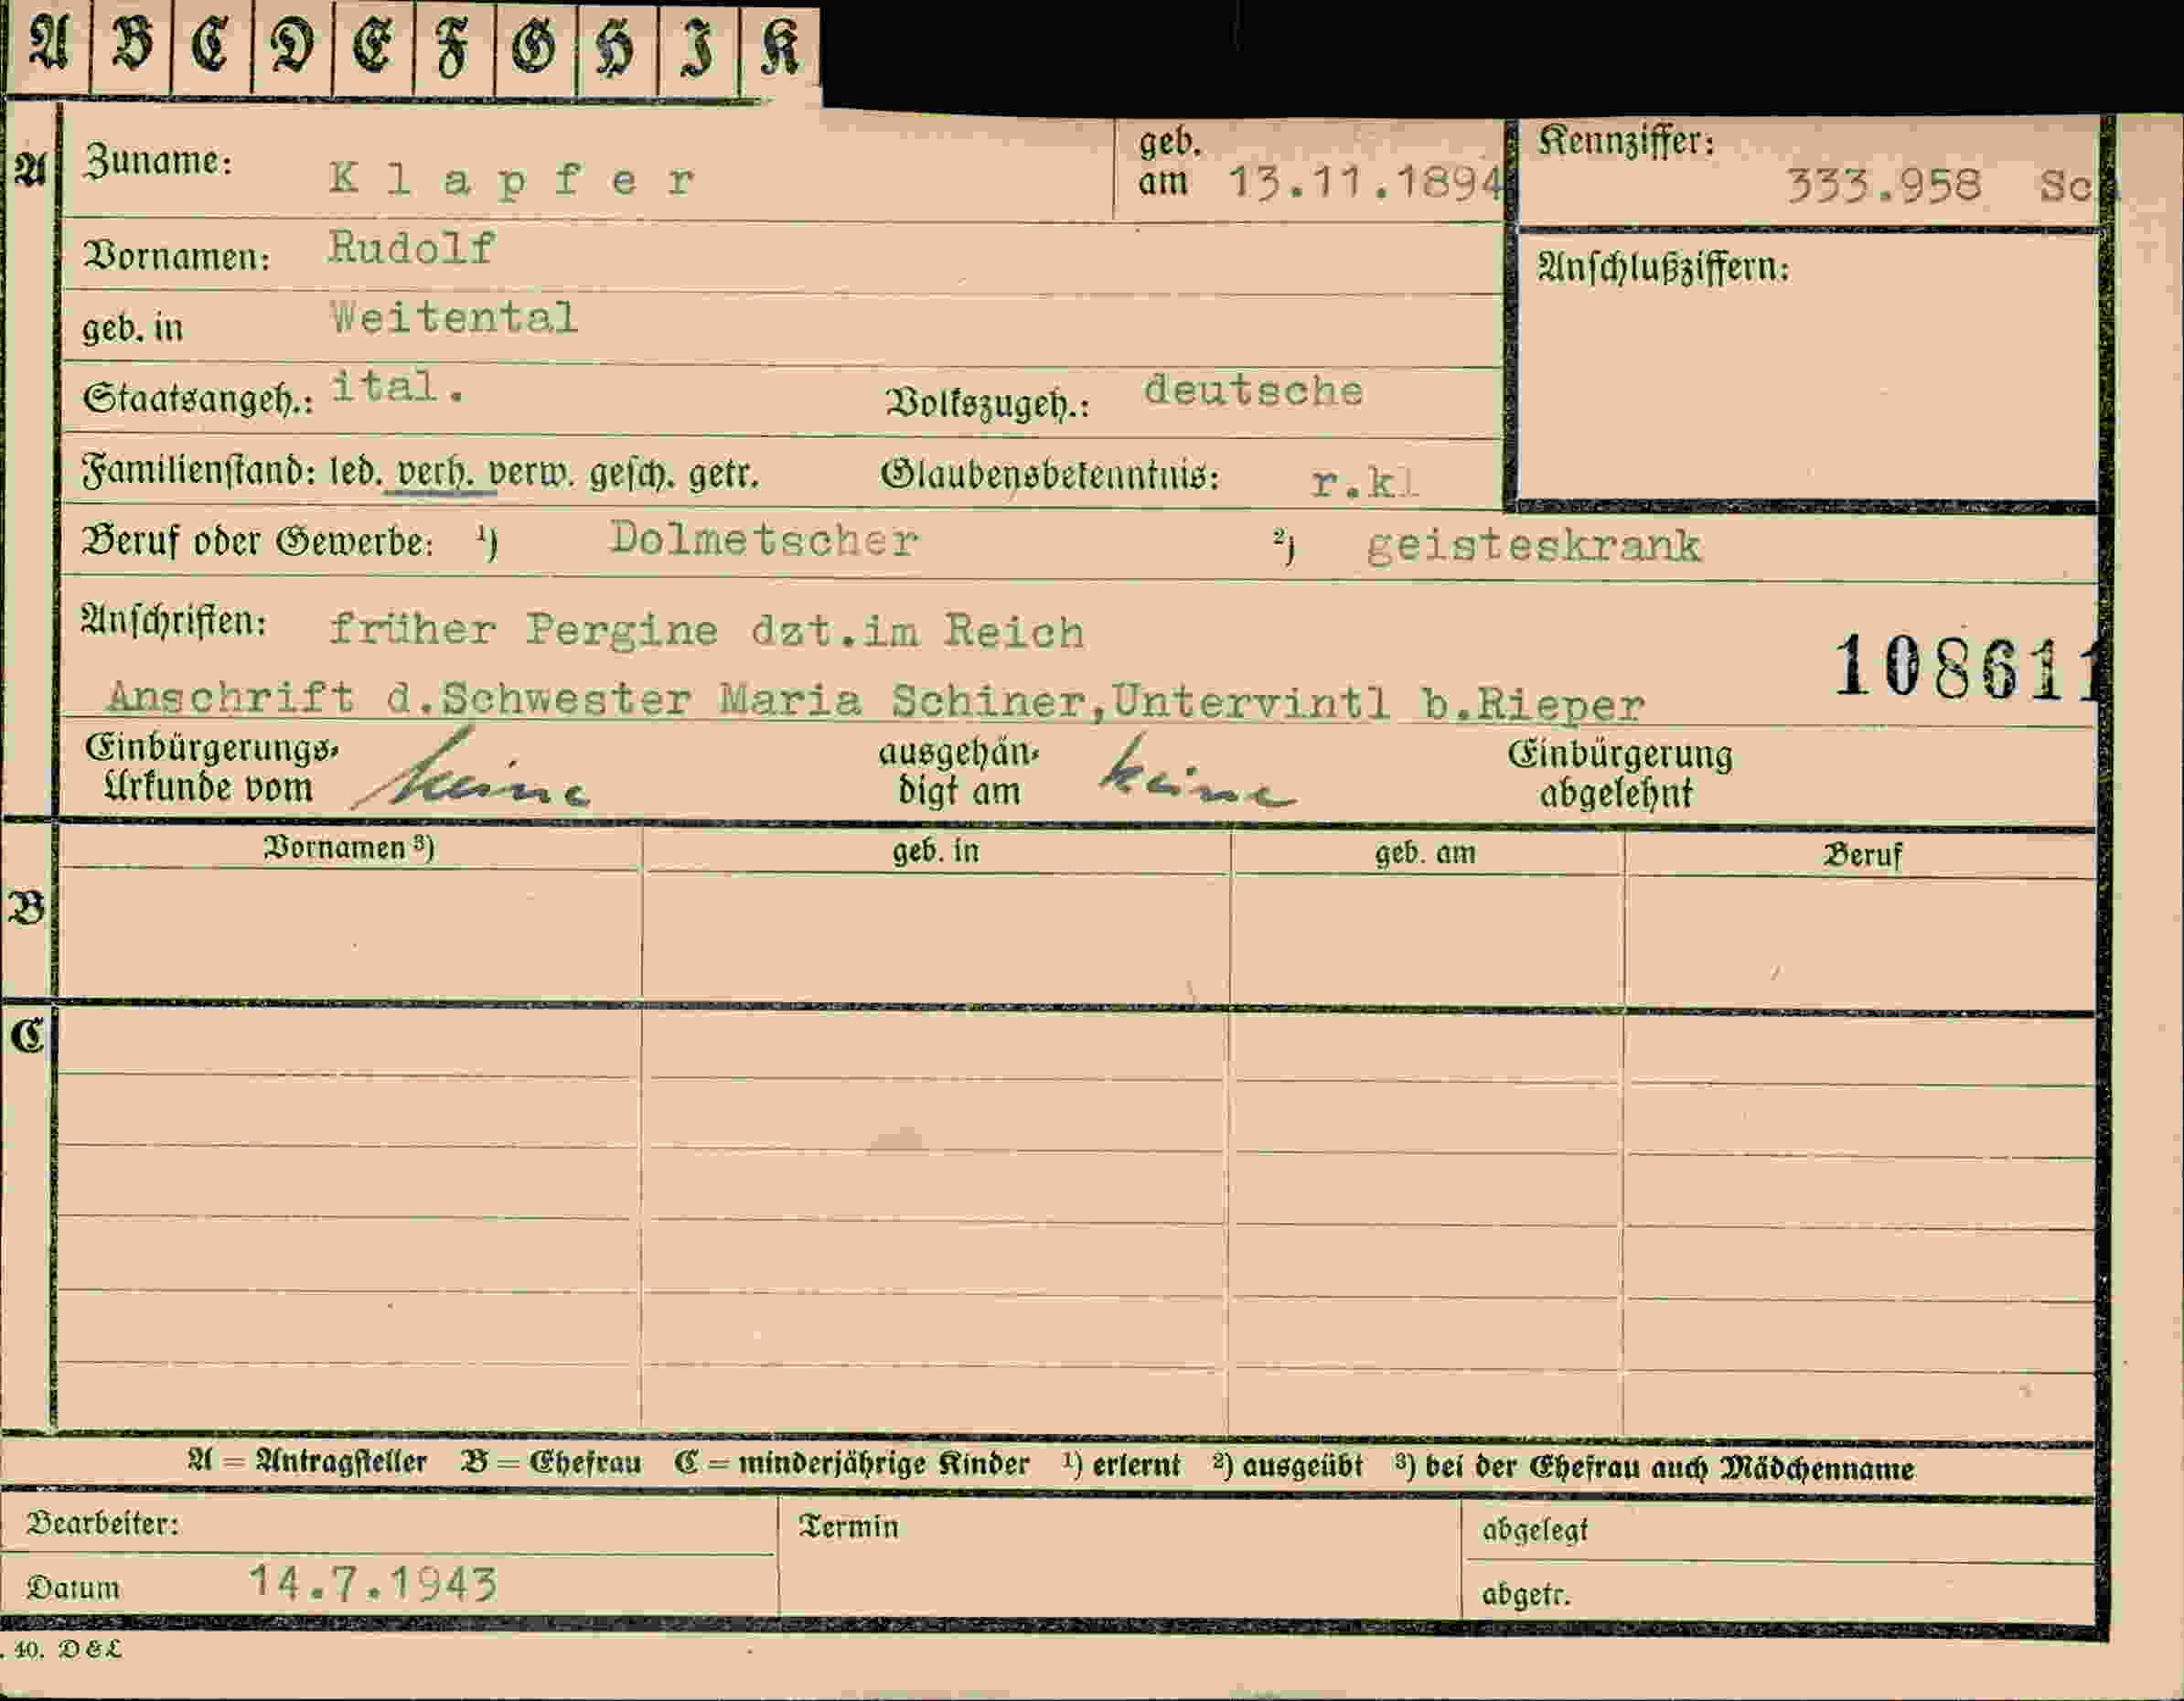 A B C D E F G H I K
A Zuname: Klapfer geb. am 13.11.1894 Kennziffer: 333.958
Vornamen: Rudolf Anschlußziffern:
geb. in Weitental
Staatsangeh.: ital. Volkszugeh.: deutsche
Familienstand: led. verh. verw. gesch. getr. Glaubensbekenntnis: r.k
Beruf oder Gewerbe: ¹) Dolmetscher ²) geisteskrank
Anschriften: früher Pergine dzt.im Reich
108611
Anschrift d.Schwester Maria Schiner,Untervintl b.Rieper
Einbürgerungs- ausgehän- Einbürgerung
Urkunde vom keine digt am keine abgelehnt
Vornamen ³) geb. in geb. am Beruf
B
C
A = Antragsteller B = Ehefrau C = minderjährige Kinder ¹) erlernt ²) ausgeübt ³) bei der Ehefrau auch Mädchenname
Bearbeiter: Termin abgelegt
Datum 14.7.1943 abgetr.
. 40. D & L